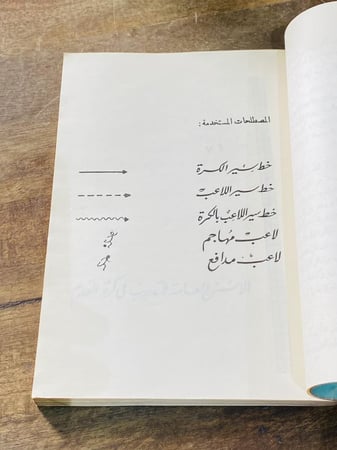 المصطلحات المستخدمة :
خط سير الكرة
خط سير اللاعب
خط سير اللاعب بالكرة
لاعب مهاجم
لاعب مدافع